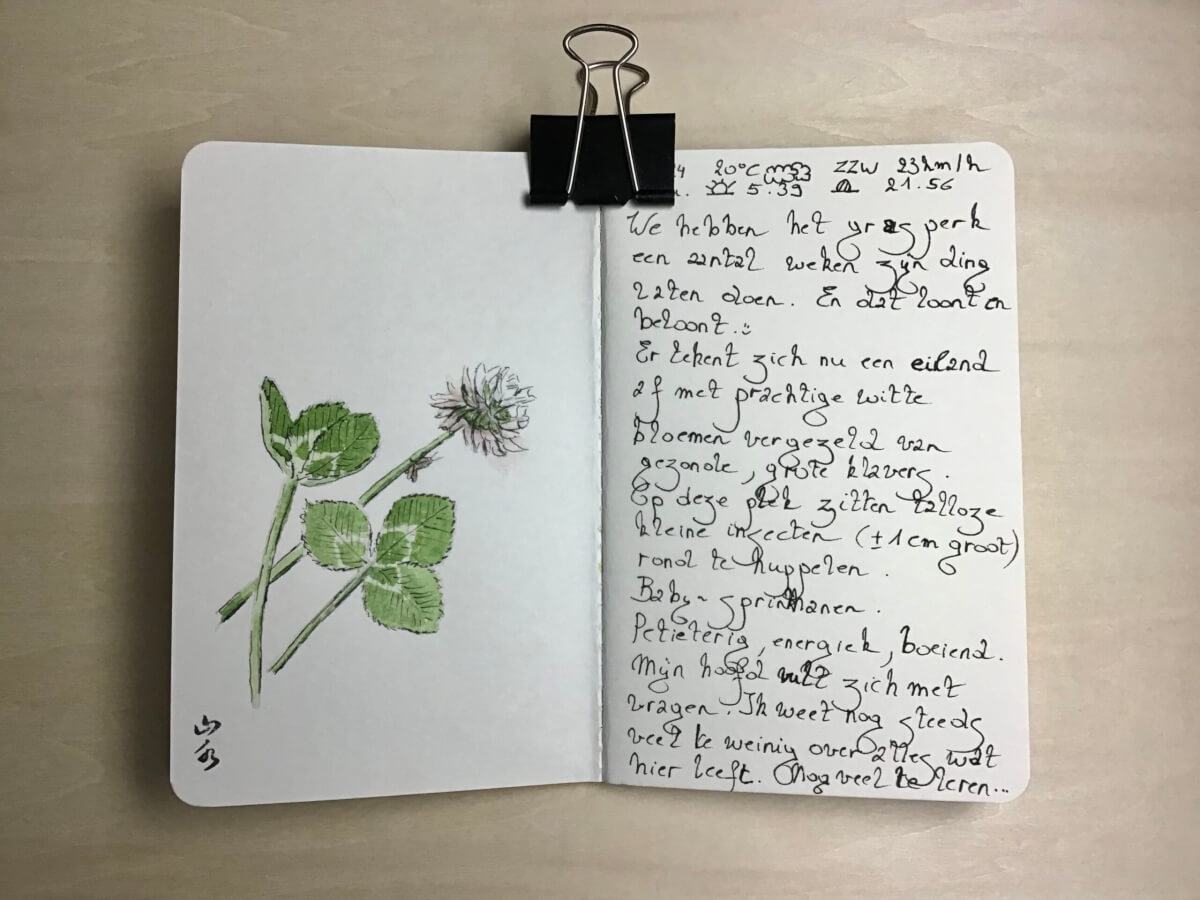 24 20°C ZZW 23km/h
5.39 21.56
We hebben het grasperk
een aantal weken zijn ding
laten doen. En dat loont en
beloont.
Er tekent zich nu een eiland
af met prachtige witte
bloemen vergezeld van
gezonde, grote klavers.
Op deze plek zitten talloze
kleine insecten (±1cm groot)
rond te huppelen.
Baby-sprinkhanen.
Petieterig, energiek, boeiend.
Mijn hoofd vult zich met
vragen. Ik weet nog steeds
veel te weinig over alles wat
hier leeft. Nog veel te leren...
山水